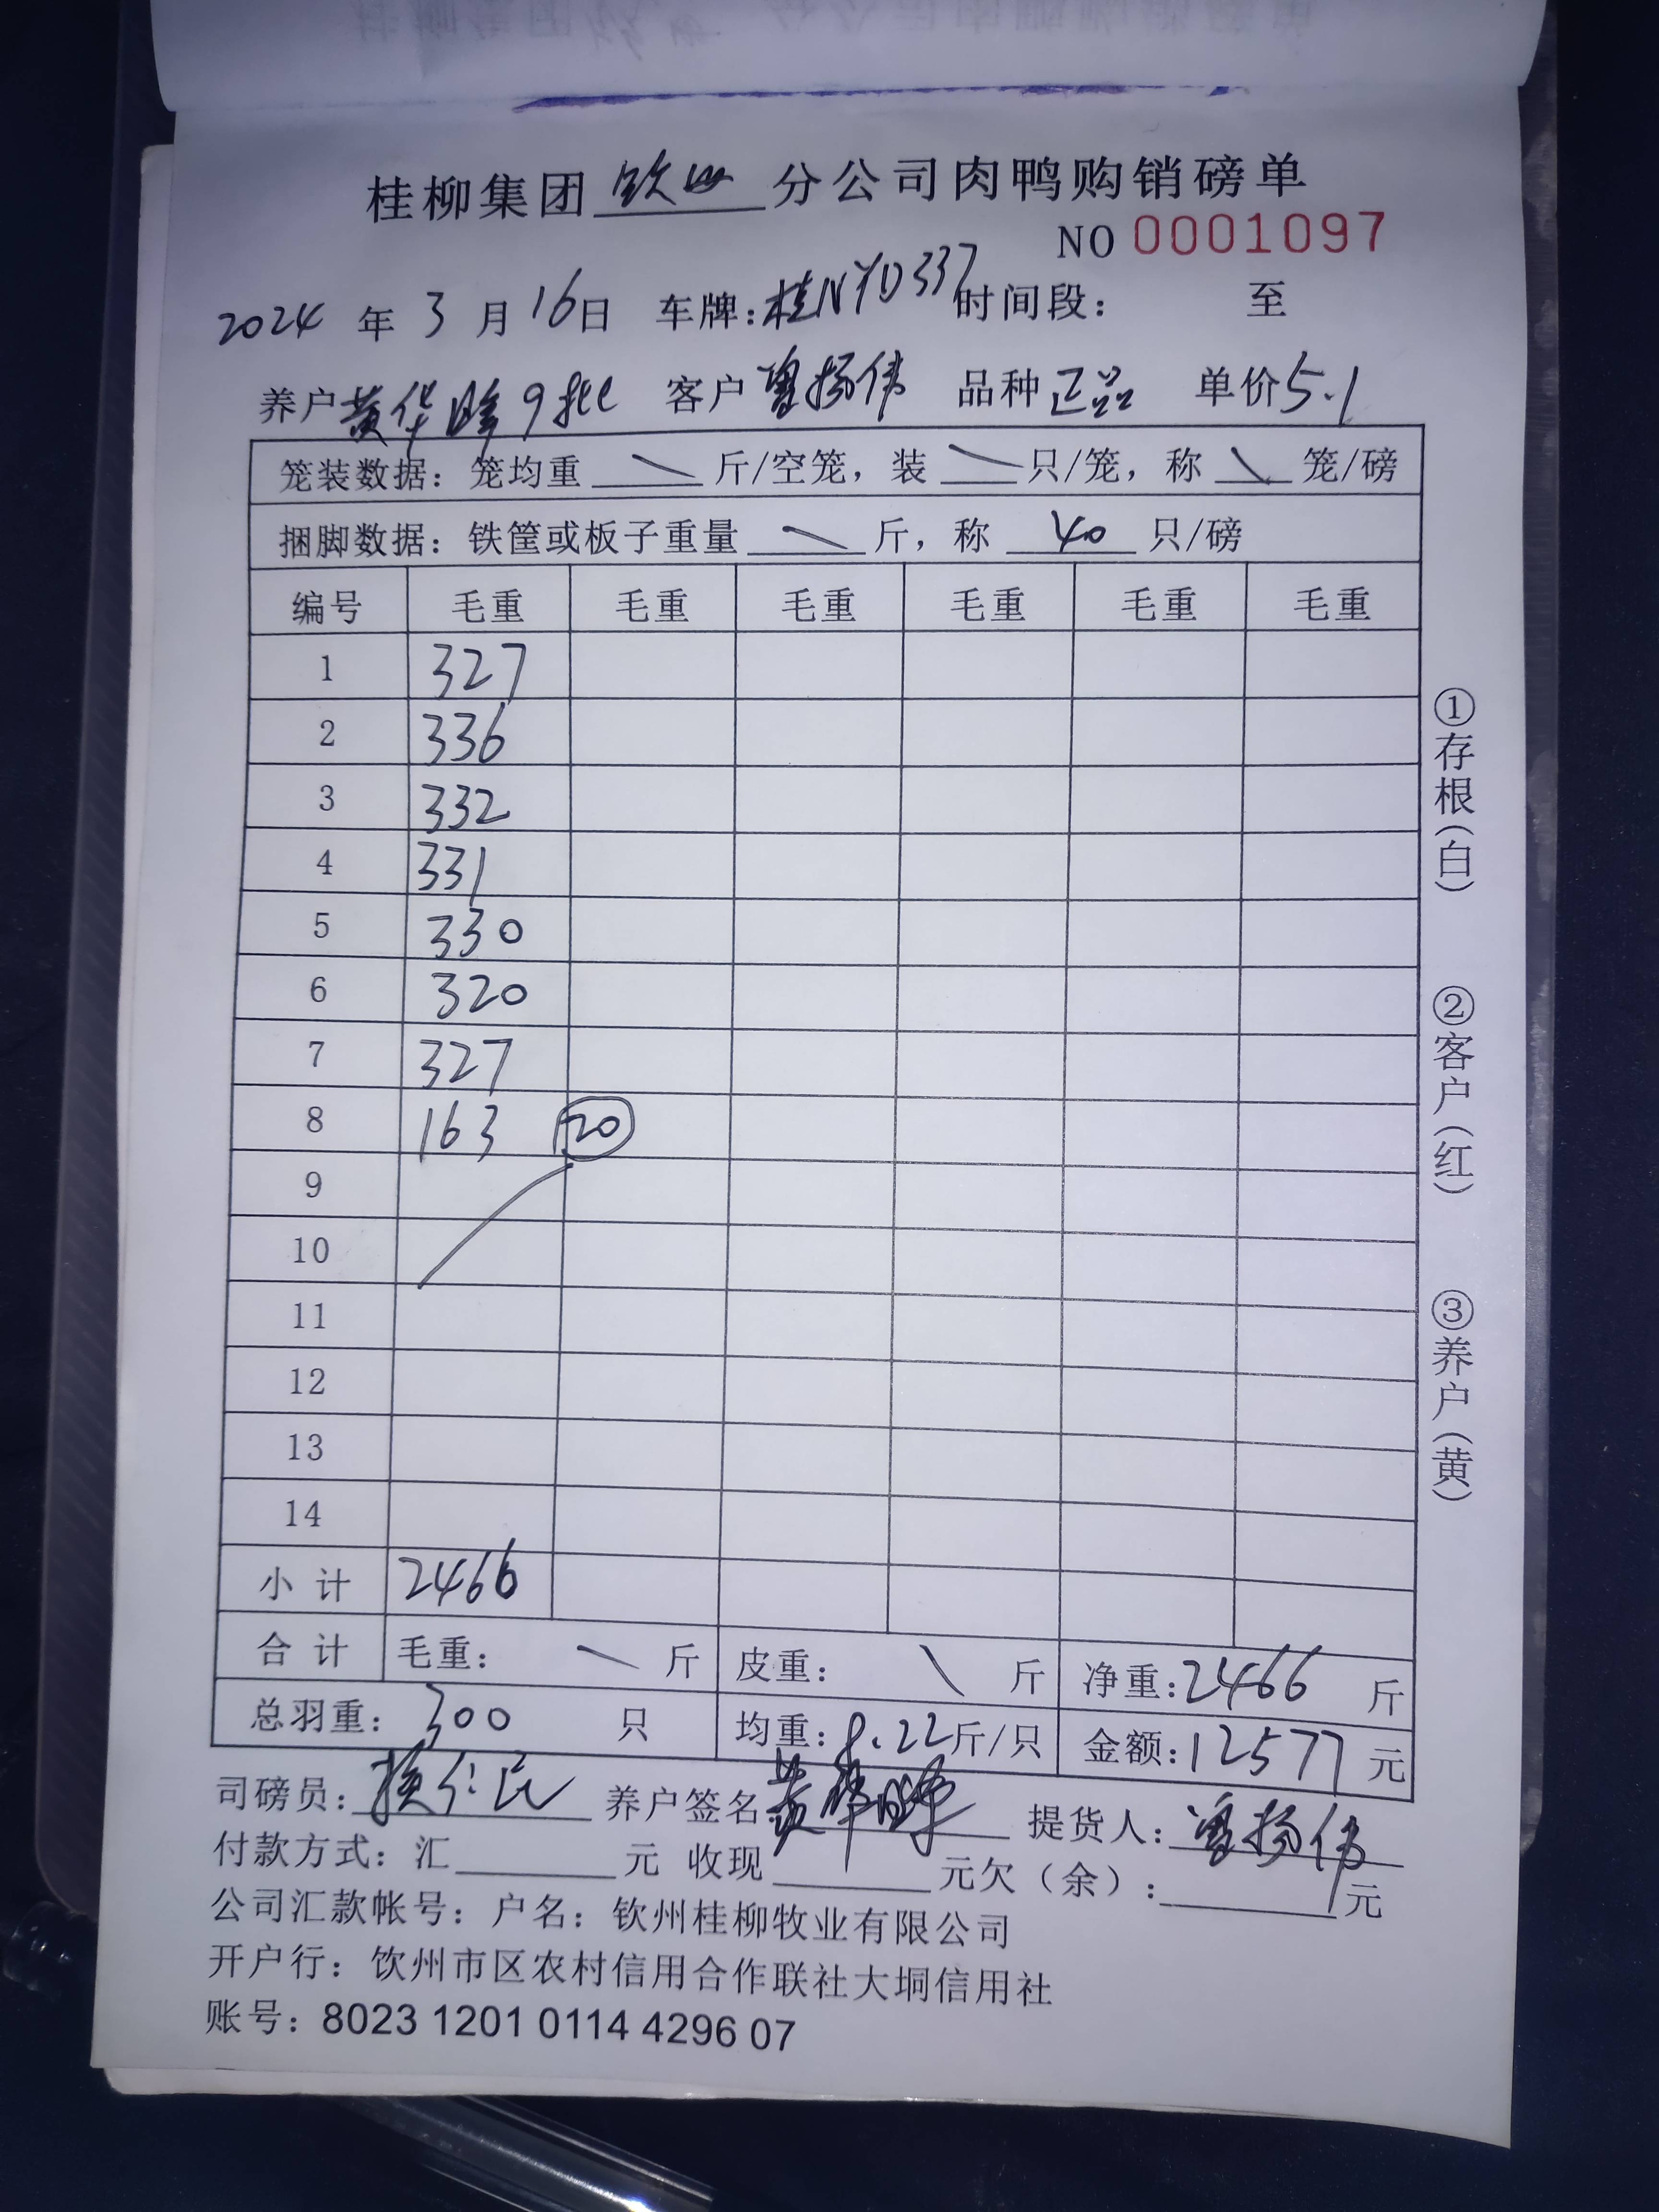 桂柳集团 钦州 分公司肉鸭购销磅单
NO 0001097
2024 年 3 月 16日 车牌:桂NYD337 时间段: 至
养户 黄华峰 9批 客户 曾扬伟 品种 正品 单价 5.1
笼装数据: 笼均重 \ 斤/空笼, 装 \ 只/笼, 称 \ 笼/磅
捆脚数据: 铁筐或板子重量 \ 斤, 称 40 只/磅
编号 毛重 毛重 毛重 毛重 毛重 毛重
1 327
2 336
3 332
4 331
5 330
6 320
7 327
8 163 20
9
10
11
12
13
14
小计 2466
合计 毛重: \ 斤 皮重: \ 斤 净重:2466 斤
总羽重: 300 只 均重:8.22斤/只 金额:12577 元
司磅员: 养户签名 黄华峰 提货人: 曾扬伟
付款方式: 汇 元 收现 元欠(余): 元
公司汇款帐号: 户名: 钦州桂柳牧业有限公司
开户行: 钦州市区农村信用合作联社大垌信用社
账号: 8023 1201 0114 4296 07
①存根(白)
②客户(红)
③养户(黄)